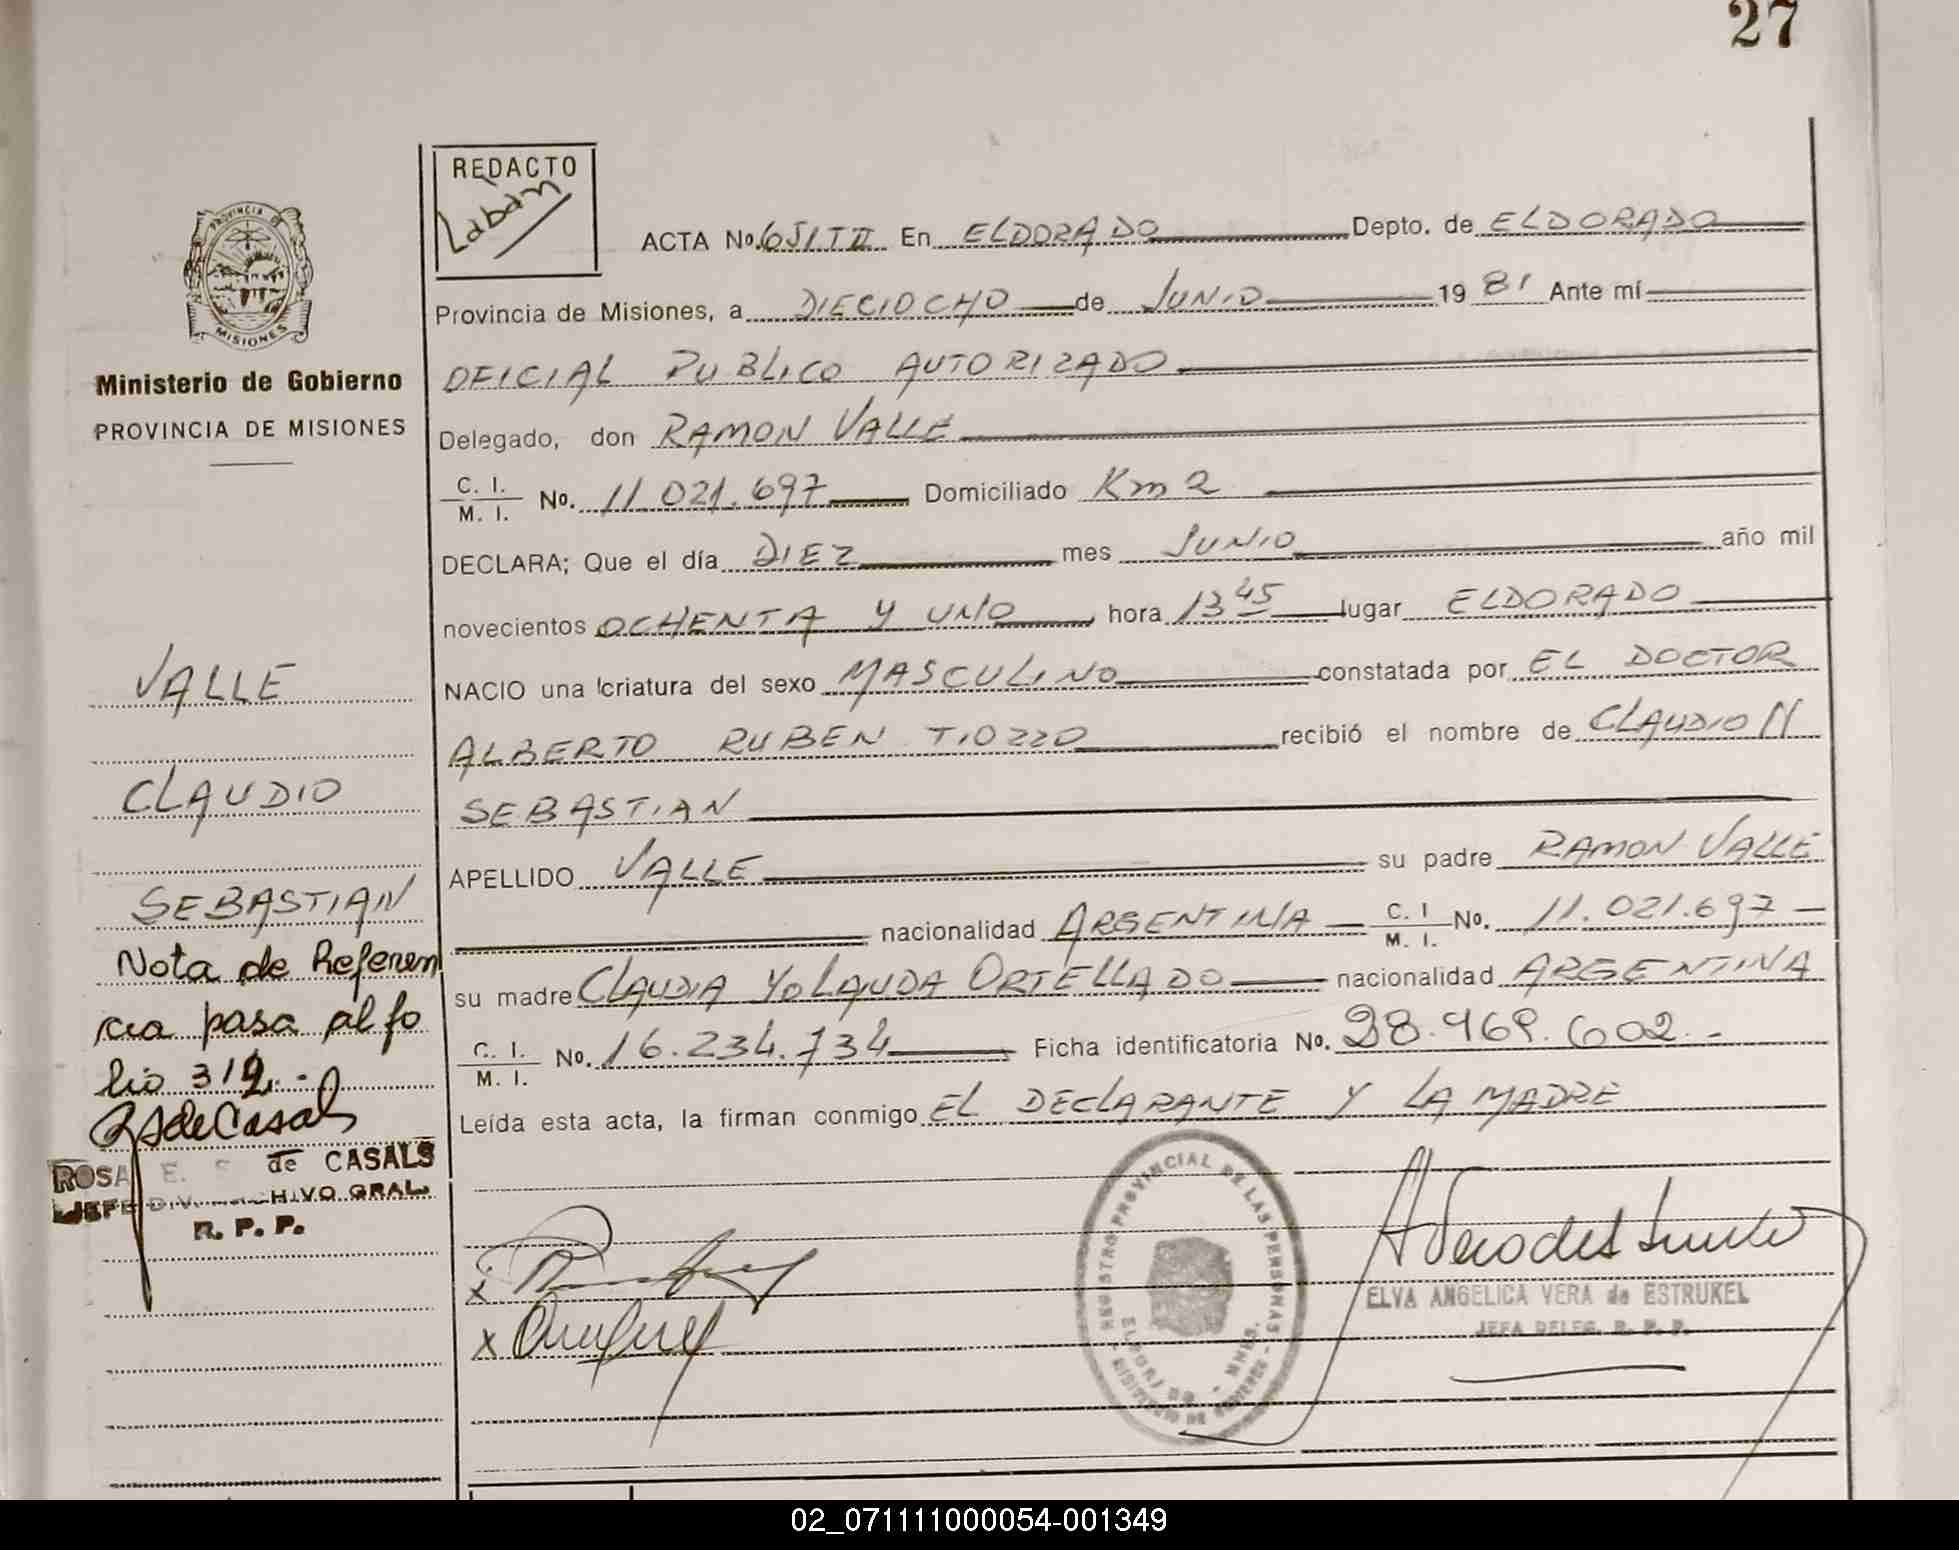 27
REDACTO
Labán
PROVINCIA DE
MISIONES
Ministerio de Gobierno
PROVINCIA DE MISIONES
ACTA No. 651 T II En ELDORADO Depto. de ELDORADO
Provincia de Misiones, a DIECIOCHO de JUNIO 1981 Ante mí
OFICIAL PUBLICO AUTORIZADO
Delegado, don RAMON VALLE
C. I. M. I. No. 11.021.697 Domiciliado Km 2
DECLARA; Que el día DIEZ mes JUNIO año mil
novecientos OCHENTA Y UNO hora 13 45 lugar ELDORADO
NACIO una criatura del sexo MASCULINO constatada por EL DOCTOR
ALBERTO RUBEN TIOZZO recibió el nombre de CLAUDIO
SEBASTIAN
APELLIDO VALLE su padre RAMON VALLE
nacionalidad ARGENTINA C. I M. I. No. 11.021.697
su madre CLAUDIA YOLANDA ORTELLADO nacionalidad ARGENTINA
C. I. M. I. No. 16.234.734 Ficha identificatoria No. 28.469.602.-
Leída esta acta, la firman conmigo EL DECLARANTE Y LA MADRE
VALLE
CLAUDIO
SEBASTIAN
Nota de Referen
cia pasa al fo
lio 312.-
RSdeCasals
ROSA E. S. de CASALS
JEFE DIV. ARCHIVO GRAL.
R. P. P.
x
x
REGISTRO PROVINCIAL DE LAS PERSONAS
ELDORADO - MNES.
MINISTERIO DE GOBIERNO
ELVA ANGELICA VERA de ESTRUKEL
JEFA DELEG. R. P. P.
02_071111000054-001349